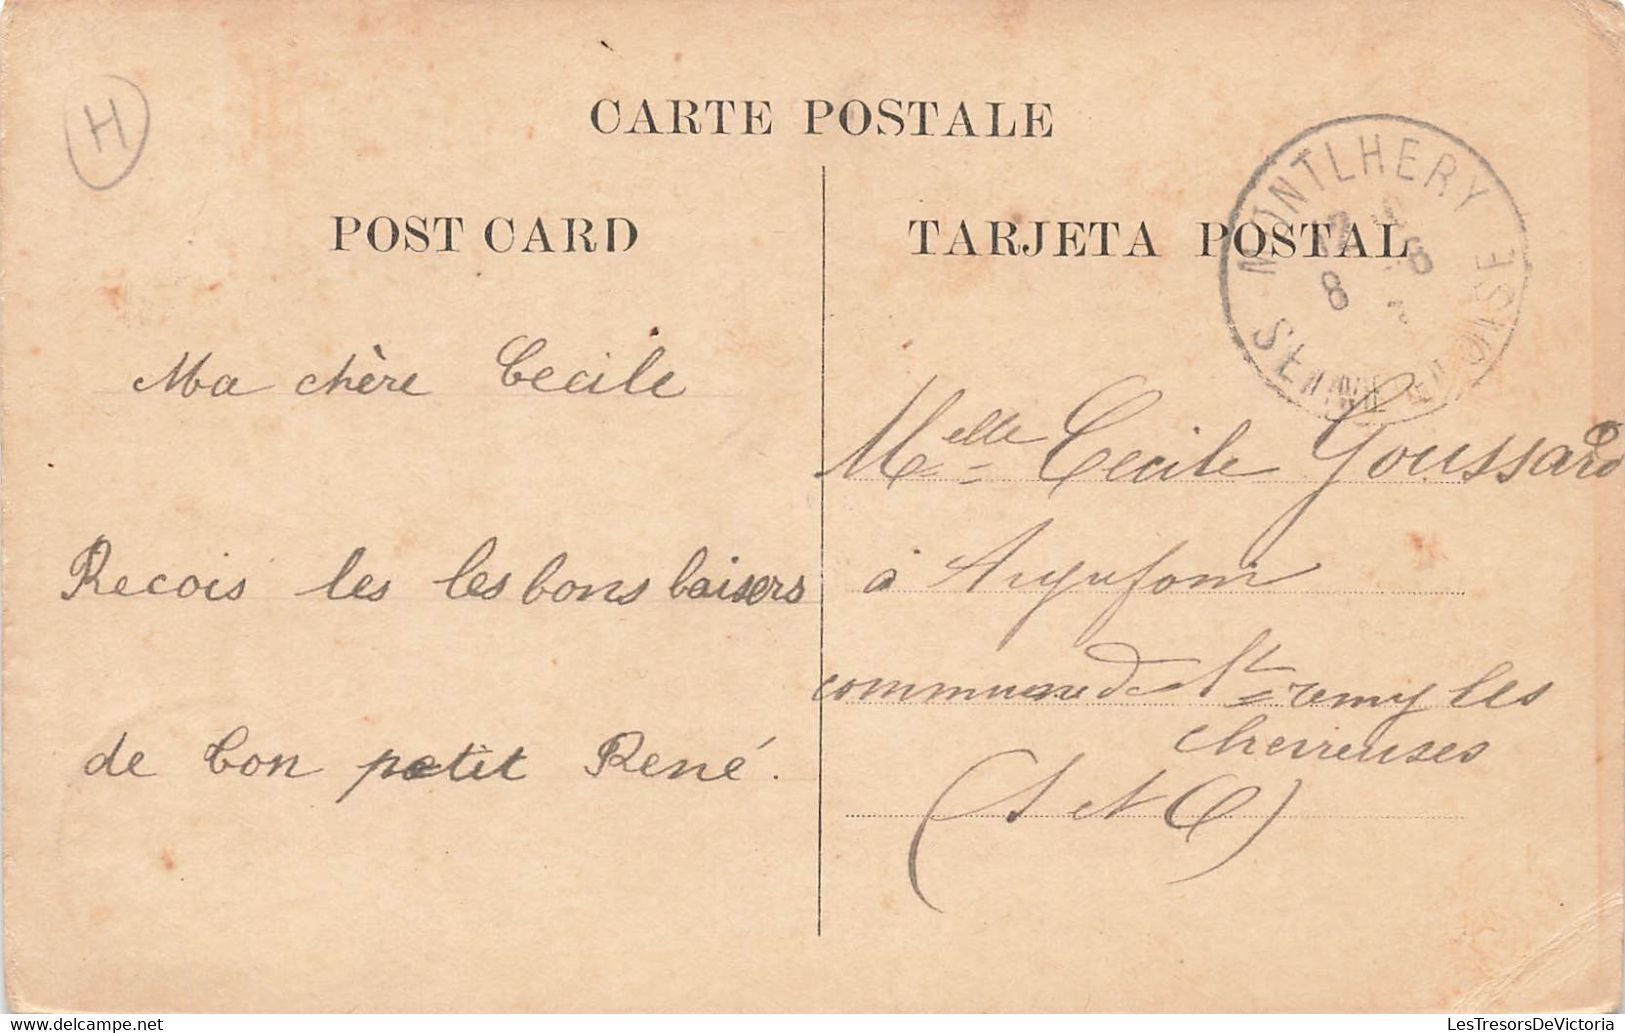 H
CARTE POSTALE
POST CARD
TARJETA POSTAL
MONTLHERY
8
SEINE ET OISE
Ma chère Cecile
Recois les les bons baisers
de ton petit René.
Melle Cecile Goussard
à
commune de St remy les
chevreuses
(S et O)
LesTresorsDeVictoria